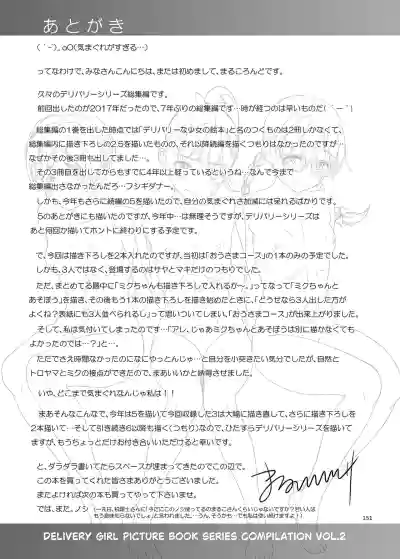 あとがき
( ´-`)。oO(気まぐれがすぎる…)
ってなわけで、みなさんこんにちは、または初めまして、まるころんどです。
久々のデリバリーシリーズ総集編です。
前回出したのが2017年だったので、7年ぶりの総集編です…時が経つのは早いものだ(´ー`)
総集編の1巻を出した時点では「デリバリーな少女の絵本」と名のつくものは2冊しかなくて、
総集編内に描き下ろしの2.5を描いたものの、それ以降続編を描くつもりはなかったのですが…
なぜかその後3冊も出してました…。
その3冊目を出してからもすでに4年以上経っているというね…なんで今まで
総集編出さなかったんだろ…フシギダナー。
しかも、今年もさらに続編の5を描いたので、自分の気まぐれさ加減には呆れるばかりです。
5のあとがきにも描いたのですが、今年中…は無理そうですが、デリバリーシリーズは
あと何回か描いてホントに終わりにする予定です。
で、今回は描き下ろしを2本入れたのですが、当初は「おうさまコース」の1本のみの予定でした。
しかも、3人ではなく、登場するのはサヤとマキだけのつもりでした。
ただ、まとめてる最中に「ミクちゃんも描き下ろしで入れるか～。」ってなって「ミクちゃんと
あそぼう」を描き、その後もう1本の描き下ろしを描き始めたときに、「どうせなら3人出した方が
よくね?表紙にも3人並べられるし」って思いついてしまい、「おうさまコース」が出来上がりました。
そして、私は気付いてしまったのです…「アレ、じゃあミクちゃんとあそぼうは別に描かなくても
よかったのでは…?」と…。
ただでさえ時間なかったのになにやっとんじゃ…と自分を小突きたい気分でしたが、自然と
トロヤマとミクの接点ができたので、まあいいかと納得させました。
いや、どこまで気まぐれなんじゃ私は!!
まあそんなこんなで、今年は5を描いて今回収録した3は大幅に描き直して、さらに描き下ろしを
2本描いて…そして引き続き6以降も描くつもり)なので、ひたすらデリバリーシリーズを描いて
ますが、もうちょっとだけお付き合いいただけると幸いです。
と、ダラダラ書いてたらスペースが埋まってきたのでこの辺で。
この本を買ってくれた皆さまありがとうございました。
またよければ次の本も買ってやって下さいませ。
では、また。ノシ
151
DELIVERY GIRL PICTURE BOOK SERIES COMPILATION VOL.2